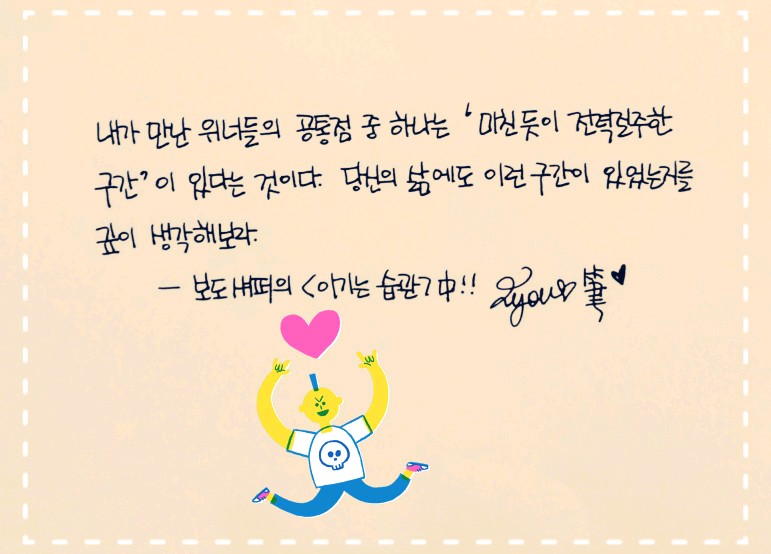 내가 만난 위너들의 공통점 중 하나는 '미친듯이 전력질주한
구간'이 있다는 것이다. 당신의 삶에도 이런 구간이 있었는지를
깊이 생각해보라.
- 보도 섀퍼의 <이기는 습관> 中!! 筆♥